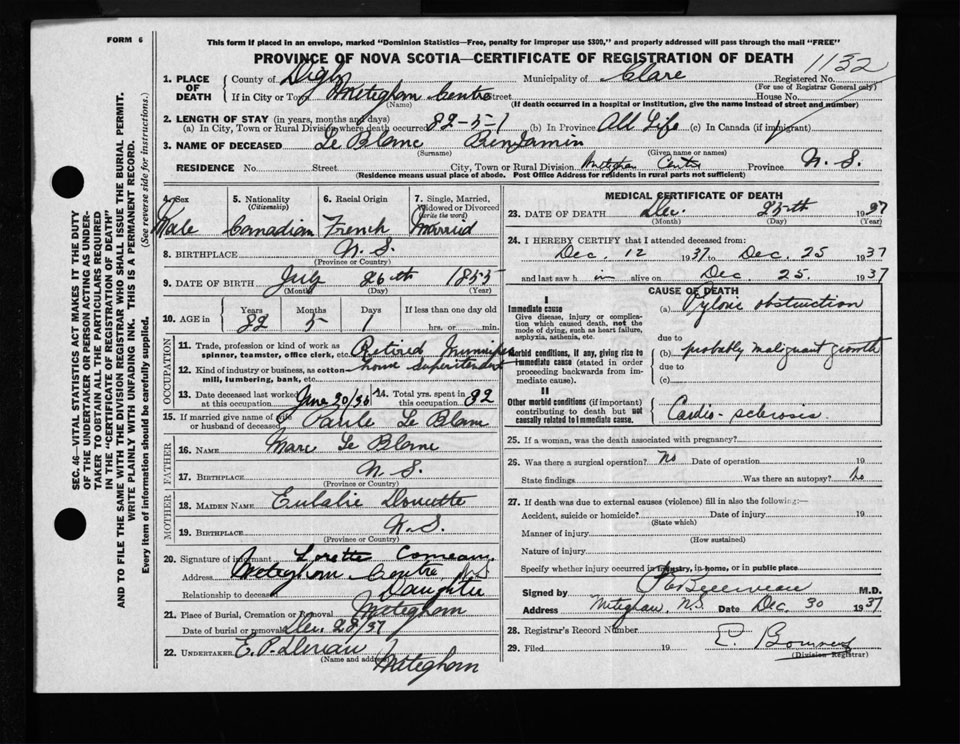 FORM 6
This form if placed in an envelope, marked "Dominion Statistics—Free, penalty for improper use $300," and properly addressed will pass through the mail "FREE"
PROVINCE OF NOVA SCOTIA—CERTIFICATE OF REGISTRATION OF DEATH
1152
1. PLACE OF DEATH County of Digby Municipality of Clare Registered No.
(For use of Registrar General only)
If in City or Town Meteghan Centre Street House No.
(Name) (If death occurred in a hospital or institution, give the name instead of street and number)
2. LENGTH OF STAY (in years, months and days)
(a) In City, Town or Rural Division where death occurred 82-5-1 (b) In Province All Life (c) In Canada (if immigrant)
3. NAME OF DECEASED Le Blanc Benjamin
(Surname) (Given name or names)
RESIDENCE No. Street City, Town or Rural Division Meteghan Centre Province N.S.
(Residence means usual place of abode. Post Office Address for residents in rural parts not sufficient)
4. Sex Male
5. Nationality (Citizenship) Canadian
6. Racial Origin French
7. Single, Married, Widowed or Divorced (write the word) Married
8. BIRTHPLACE N.S.
(Province or Country)
9. DATE OF BIRTH July 26th 1855
(Month) (Day) (Year)
10. AGE in Years Months Days If less than one day old
82 5 1 hrs. or min.
OCCUPATION
11. Trade, profession or kind of work as spinner, teamster, office clerk, etc. Retired Municipal
12. Kind of industry or business, as cotton-mill, lumbering, bank, etc. home superintendent
13. Date deceased last worked at this occupation June 20/36 14. Total yrs. spent in this occupation 32
15. If married give name of wife or husband of deceased Le Blanc
FATHER
16. NAME Marc Le Blanc
17. BIRTHPLACE N.S.
(Province or Country)
MOTHER
18. MAIDEN NAME Eulalie Doucette
19. BIRTHPLACE N.S.
(Province or Country)
20. Signature of informant Loretta Comeau
Address Meteghan Centre, N.S.
Relationship to deceased Daughter
21. Place of Burial, Cremation or Removal Meteghan
Date of burial or removal Dec 28/37
22. UNDERTAKER E.P. Meteghan
(Name and address)
MEDICAL CERTIFICATE OF DEATH
23. DATE OF DEATH Dec. 25th 1937
(Month) (Day) (Year)
24. I HEREBY CERTIFY that I attended deceased from:
Dec. 12 1937 to Dec. 25 1937
and last saw him alive on Dec 25. 1937
CAUSE OF DEATH
I
Immediate cause
Give disease, injury or complication which caused death, not the mode of dying, such as heart failure, asphyxia, asthenia, etc.
(a) Pyloric obstruction
due to
Morbid conditions, if any, giving rise to immediate cause (stated in order proceeding backwards from immediate cause).
(b) probably malignant growth
due to
(c)
II
Other morbid conditions (if important) contributing to death but not causally related to immediate cause.
Cardio-sclerosis.
25. If a woman, was the death associated with pregnancy?
26. Was there a surgical operation? No Date of operation 19
State findings Was there an autopsy? No
27. If death was due to external causes (violence) fill in also the following:—
Accident, suicide or homicide? Date of injury 19
(State which)
Manner of injury
(How sustained)
Nature of injury
Specify whether injury occurred in industry, in home, or in public place
Signed by M.D.
Address Meteghan, N.S. Date Dec. 30 1937
28. Registrar's Record Number
29. Filed 19
(Division Registrar)
SEC. 46—VITAL STATISTICS ACT MAKES IT THE DUTY
OF THE UNDERTAKER OR PERSON ACTING AS UNDER-
TAKER TO OBTAIN ALL THE PARTICULARS REQUIRED
IN THE "CERTIFICATE OF REGISTRATION OF DEATH"
AND TO FILE THE SAME WITH THE DIVISION REGISTRAR WHO SHALL ISSUE THE BURIAL PERMIT.
WRITE PLAINLY WITH UNFADING INK. THIS IS A PERMANENT RECORD.
Every item of information should be carefully supplied. (See reverse side for instructions.)